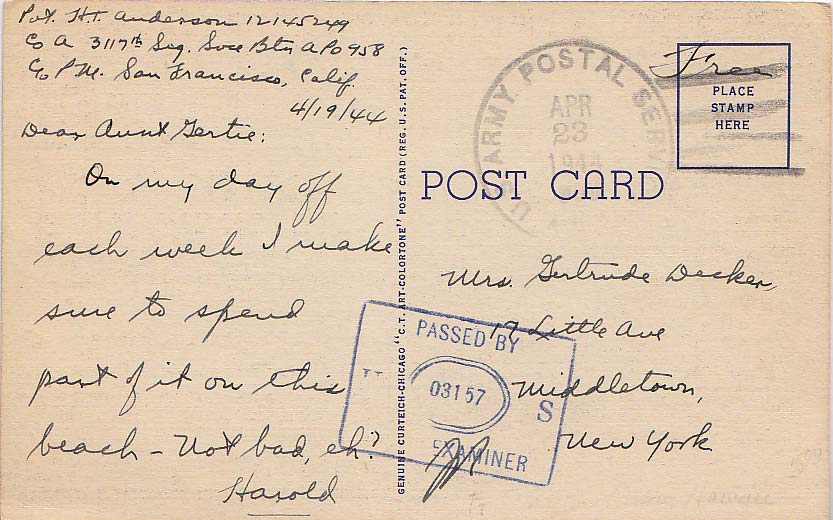 Pvt. H.T. Anderson 12145249
Co A 3117th Sig. Svce Btn APO 958
c/o P.M. San Francisco, Calif.
4/19/44
Dear Aunt Gertie:
On my day off
each week I make
sure to spend
part of it on this
beach – Not bad, eh?
Harold
GENUINE CURTEICH-CHICAGO "C.T. ART-COLORTONE" POST CARD (REG. U.S. PAT. OFF.)
U.S. ARMY POSTAL SERV
APR
23
1944
Free
PLACE
STAMP
HERE
POST CARD
Mrs. Gertrude Decker,
17 Little Ave
Middletown,
New York.
PASSED BY
03157
S
EXAMINER